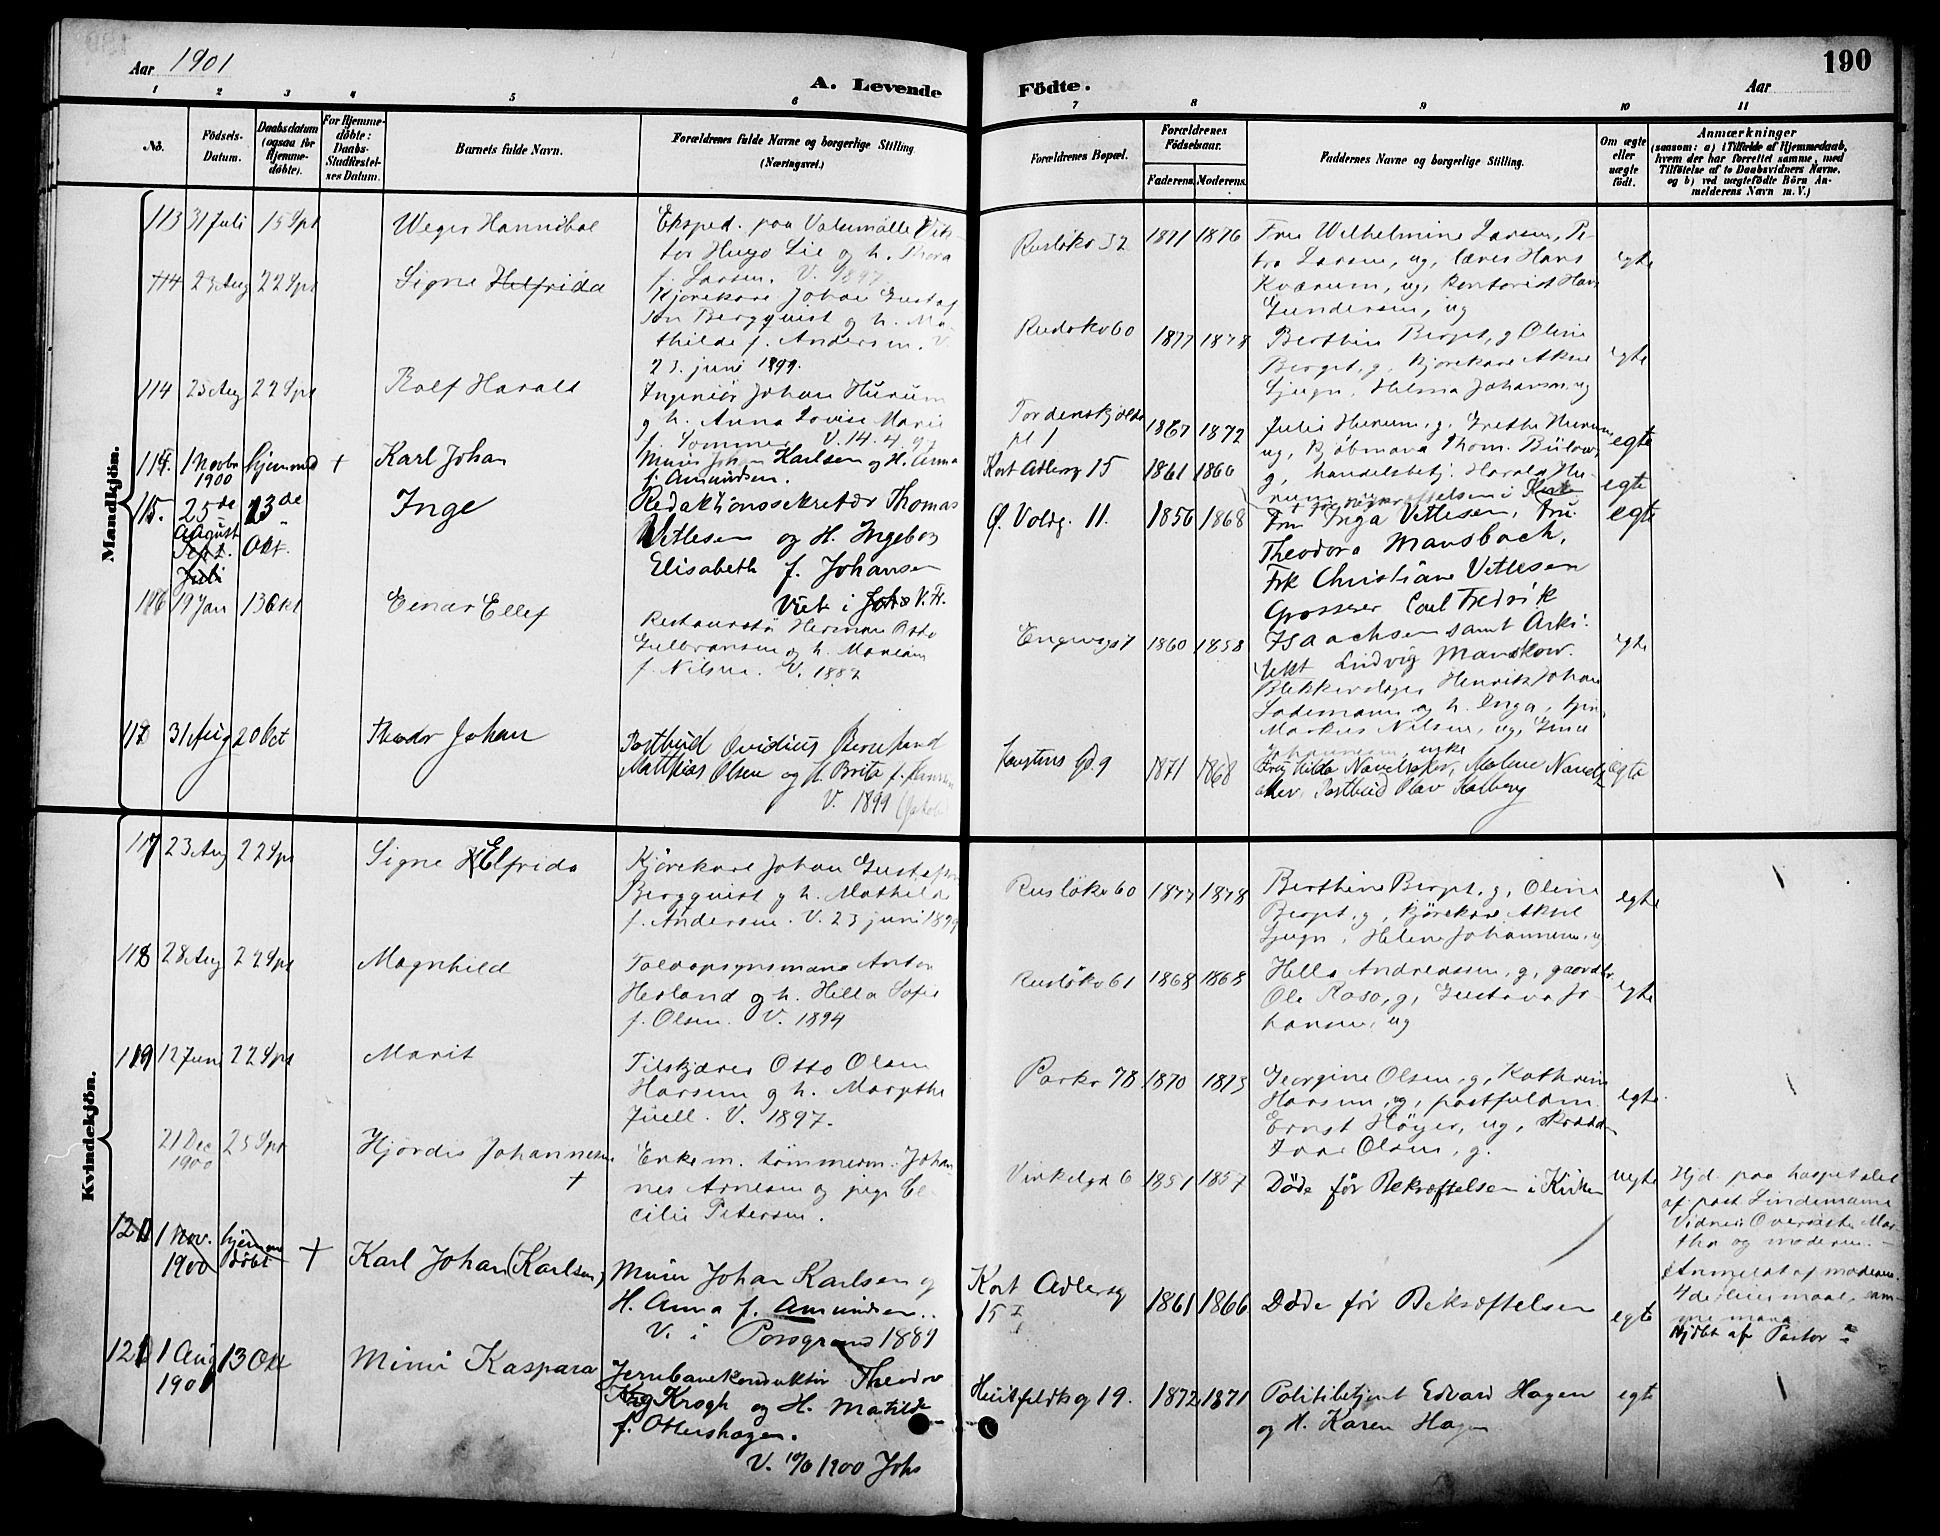 Aar 1901
A. Levende
Födte.
Aar
190
1 2 3 4 5 6 7 8 9 10 11
No.
Födsels-Datum.
Daabsdatum (ogsaa for Hjemme-döbte).
For Hjemme-döbte: Daabs-Stadfæstel-ses Datum.
Barnets fulde Navn.
Forældrenes fulde Navne og borgerlige Stilling
(Næringsvei.)
Forældrenes Bopæl.
Forældrenes Födselsaar.
Faderens. Moderens.
Faddernes Navne og borgerlige Stilling.
Om ægte eller uægte födt.
Anmærkninger
(saasom: a) i Tilfælde af Hjemmedaab, hvem der har forrettet samme, med Tilföielse af to Daabsvidners Navne, og b) ved uægtefödte Börn An-melderens Navn m. V.)
Mandkjön.
113 31 Juli 15 Spt
Hannibal
Hugo Lie og h. Thora
f. Larsen. V. 1897
Rusløkv 52 1871 1876
Fru Wilhelmine Larsen, Pe-
tra Larsen, ug, Hans
ug, Kontorist Hans
Gundersen, ug
egte
114 23 Aug 22 Spt
Signe Helfrida
Kjørekarl Johan Gustaf
Bergquist og h. Ma-
thilde f. Andersen. V.
23. juni 1899.
Rusløkv 60 1877 1878
Berthine Bergqt, g, Oline
Bergqt, g, Kjørekarl Aksel
Ljugn, Helma Johansen, ug
egte
114 25 Aug 22 Spt
Rolf Harald
Ingeniør Johan Hurum
og h. Anna Lovise Marie
f. Sommer V. 14.4.97
Tordenskjolds
pl 1 1867 1872
Julie Hurum, g, Grethe Hurum,
ug, Kjøbmand Thom. Bülow,
g, handelsbetj. Harald Hu-
rum
egte
114. 1 Novbr 1900 hjemmed +
Karl Johan
Murer Johan Karlsen og H. Anna
f. Amundsen.
Kort Adlersg 15 1861 1860
egte
115. 25de August Sept. Juli 13de Okt.
Inge
Redaktionssekretær Thomas
Vetlesen og H. Ingeborg
Elisabeth f. Johansen
Viet i Johs V. Fr.
Ø. Voldg. 11. 1856 1868
Fru Inga Vetlesen, Fru
Theodora Mansbach,
Frk Christiane Vetlesen
Grosserer Carl Fredrik
Isaachsen samt Arki-
tekt Ludvig
egte
116 19 Jan 13 Okt
Einar Ellef
Restauratør Herman Otto
Gulbransen og h. Mariam
f. Nilsen. V. 1887
1860 1858
Blikkenslager Henrik Johan
Lademann og h. Inga,
Markus Nilsen, ug,
egte
117 31 Aug 20 Oct
Theodor Johan
Postbud Ovidius
Matthias Olsen og H. Brita f. Hansen
V. 1899
1871 1868
Molene
Postbud Olav Holberg
egte
Kvindekjön.
117 23 Aug 22 Spt
Signe Elfrida
Kjørekarl Johan Gustafson
Bergquist og h. Mathilde
f. Andersen. V. 23 juni 1899
Rusløkv 60 1877 1878
Berthine Bergqt, g, Oline
Bergqt, g, Kjørekarl Aksel
Ljugn, Helene Johannesen, ug
egte
118 28 Aug 22 Spt
Magnhild
Toldopsynsmand Anton
Herland og h. Hilla Sofie
f. Olsen. V. 1894
Rusløkv 61 1868 1868
Hella Andreassen, g, gaardbr
Ole Raso, g, Gustava Jo-
hansen, ug
egte
119 12 Juni 22 Spt
Marit
Tilskjærer Otto Olsen
Harsem og h. Margthe
Juell. V. 1897.
Parkv 78 1870 1873
Georgine Olsen, g, Kathrine
Harsem, ug, postfuldm.
Ernst Høyer, ug, Skrædd
Ivar Olsen, g.
egte
21 Dec 1900 25 Spt
Hjørdis Johannesen
+
Enkem. tømmerm. Johan-
nes Arnesen og pige Ce-
cilie Petersen.
Vinkelgd 6 1851 1857
Døde før Bekræftelsen i Kirken
uegte
Hjd. paa hospitalet
af past Lindemann
Vidner: Oversøster Mar-
tha og moderen.
Anmeldt af moderen.
4de leiermaal, sam-
me mand.
121 1 Nov. 1900 hjemme døbt +
Karl Johan (Karlsen)
Murer Johan Karlsen og
H. Anna f. Amundsen..
V. i Porsgrund 1889
Kort Adlersg
15 I 1861 1866
Døde før Bekræftelsen
egte
Hjdbt af Pastor
121 1 Aug 1901 13 Okt
Mimi Kaspara
Jernbanekonduktør Theodor
Krogh og H. Matilde
f. Ottershagen.
V. 10/6 1900 Johs
Heitfeldts g 19. 1872 1871
Politibetjent Edvard Hagen
og H. Karen Hagen
egte